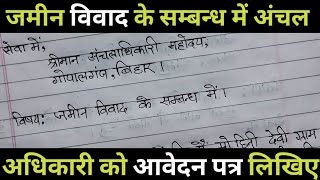 जमीन विवाद के सम्बन्ध में अंचल
सेवा में,
श्रीमान अंचलाधिकारी महोदय,
गोपालगंज, बिहार।
विषय: जमीन विवाद के सम्बन्ध में।
मोहिनी देवी ग्राम
अधिकारी को आवेदन पत्र लिखिए